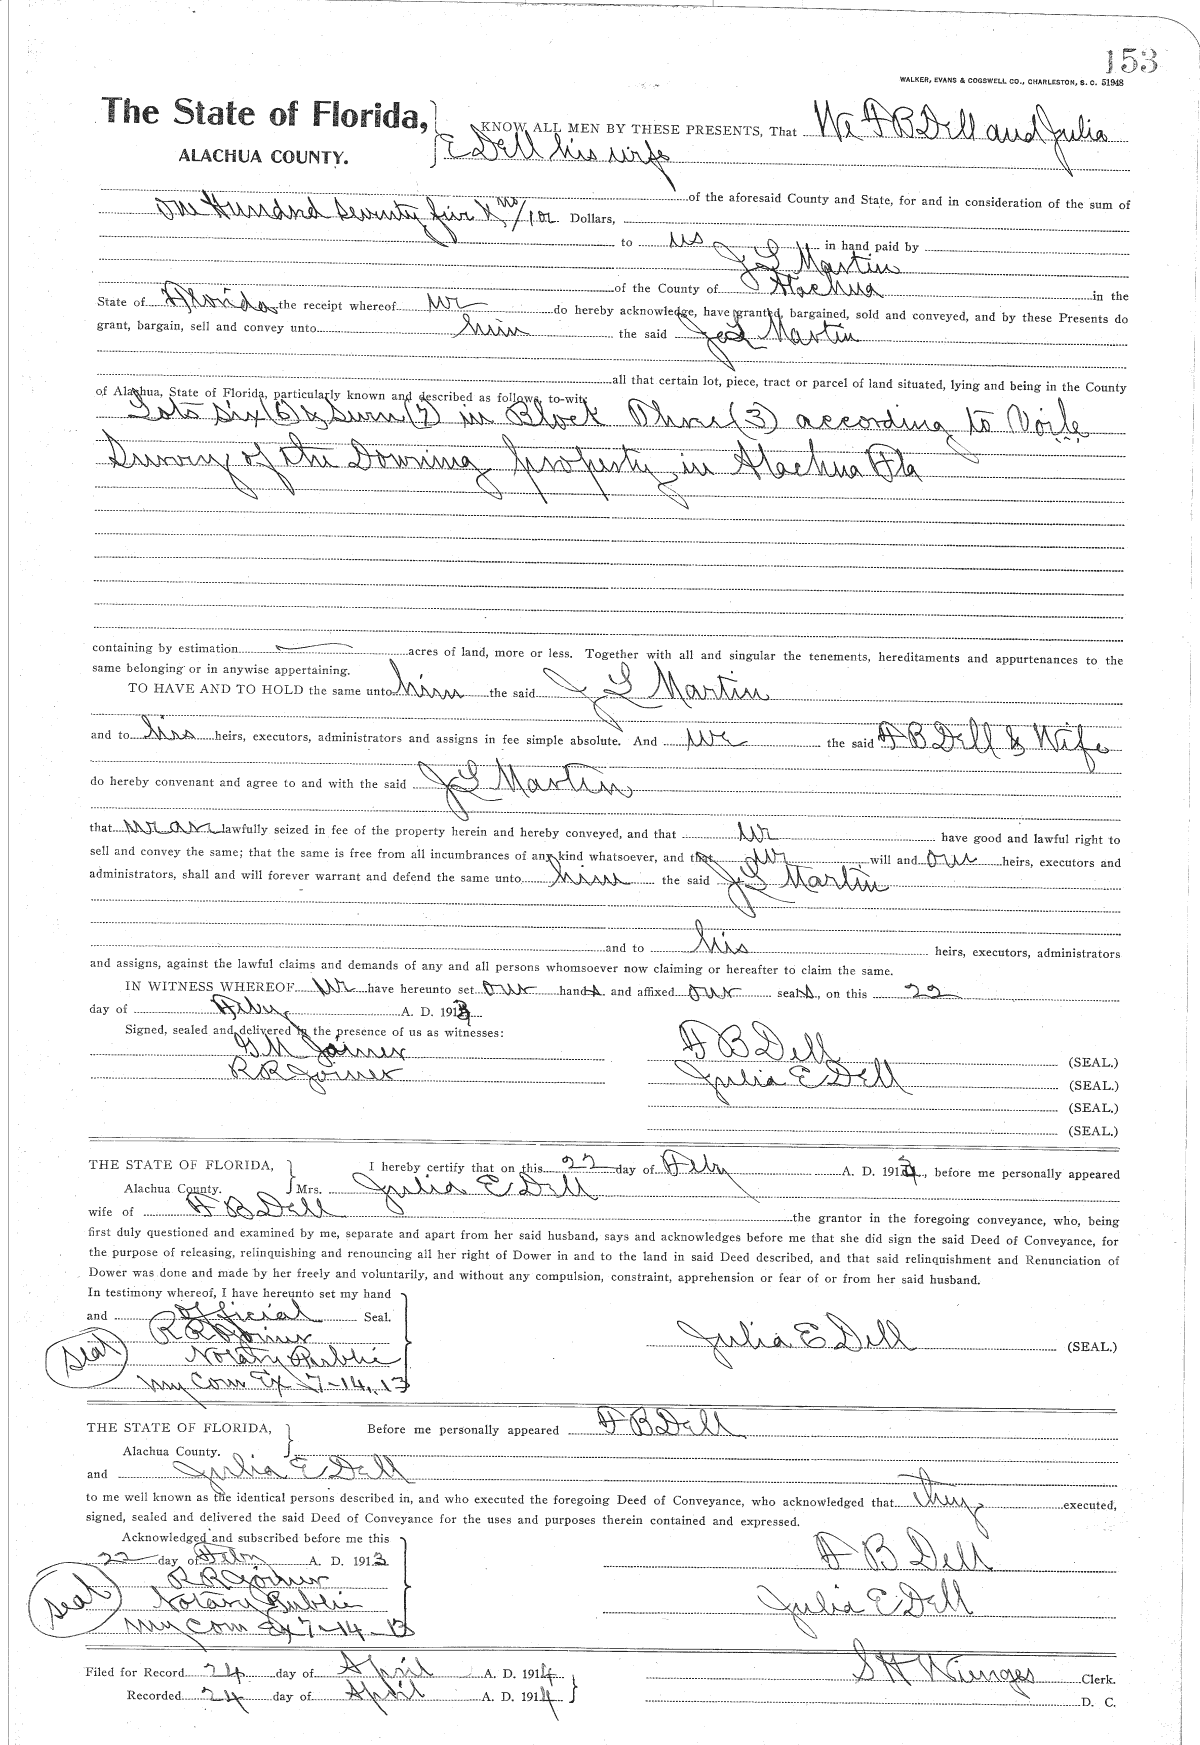 153
WALKER, EVANS & COGSWELL CO., CHARLESTON, S. C. 51948
The State of Florida,
ALACHUA COUNTY.
KNOW ALL MEN BY THESE PRESENTS, That We F B Dell and Julia
E Dell his wife
of the aforesaid County and State, for and in consideration of the sum of
One Hundred seventy five & no/100 Dollars,
to us in hand paid by
J L Martin
of the County of Alachua in the
State of Florida the receipt whereof we do hereby acknowledge, have granted, bargained, sold and conveyed, and by these Presents do
grant, bargain, sell and convey unto him the said J L Martin
all that certain lot, piece, tract or parcel of land situated, lying and being in the County
of Alachua, State of Florida, particularly known and described as follows, to-wit:
Lots six (6) & Seven (7) in Block Three (3) according to Voile
Survey of the Downing property in Alachua Fla
containing by estimation acres of land, more or less. Together with all and singular the tenements, hereditaments and appurtenances to the
same belonging or in anywise appertaining.
TO HAVE AND TO HOLD the same unto him the said J L Martin
and to his heirs, executors, administrators and assigns in fee simple absolute. And we the said F B Dell & Wife
do hereby convenant and agree to and with the said J L Martin
that we are lawfully seized in fee of the property herein and hereby conveyed, and that we have good and lawful right to
sell and convey the same; that the same is free from all incumbrances of any kind whatsoever, and that we will and our heirs, executors and
administrators, shall and will forever warrant and defend the same unto him the said J L Martin
and to his heirs, executors, administrators
and assigns, against the lawful claims and demands of any and all persons whomsoever now claiming or hereafter to claim the same.
IN WITNESS WHEREOF We have hereunto set our hands and affixed our seals, on this 22
day of Feby A. D. 1913
Signed, sealed and delivered in the presence of us as witnesses:
G M Joiner
R R Joiner
F B Dell (SEAL.)
Julia E Dell (SEAL.)
(SEAL.)
(SEAL.)
THE STATE OF FLORIDA,
Alachua County.
I hereby certify that on this 22 day of Feby A. D. 1913, before me personally appeared
Mrs. Julia E Dell
wife of F B Dell the grantor in the foregoing conveyance, who, being
first duly questioned and examined by me, separate and apart from her said husband, says and acknowledges before me that she did sign the said Deed of Conveyance, for
the purpose of releasing, relinquishing and renouncing all her right of Dower in and to the land in said Deed described, and that said relinquishment and Renunciation of
Dower was done and made by her freely and voluntarily, and without any compulsion, constraint, apprehension or fear of or from her said husband.
In testimony whereof, I have hereunto set my hand
and official Seal.
R R Joiner
Notary Public
My Com Ex 7-14, 13
Seal
Julia E Dell (SEAL.)
THE STATE OF FLORIDA,
Alachua County.
Before me personally appeared F B Dell
and Julia E Dell
to me well known as the identical persons described in, and who executed the foregoing Deed of Conveyance, who acknowledged that they executed,
signed, sealed and delivered the said Deed of Conveyance for the uses and purposes therein contained and expressed.
Acknowledged and subscribed before me this
22 day of Feby A. D. 1913
R R Joiner
Notary Public
My Com Ex 7-14-13
Seal
F B Dell
Julia E Dell
Filed for Record 24 day of April A. D. 1914
Recorded 24 day of April A. D. 1914
S H Wienges Clerk.
D. C.